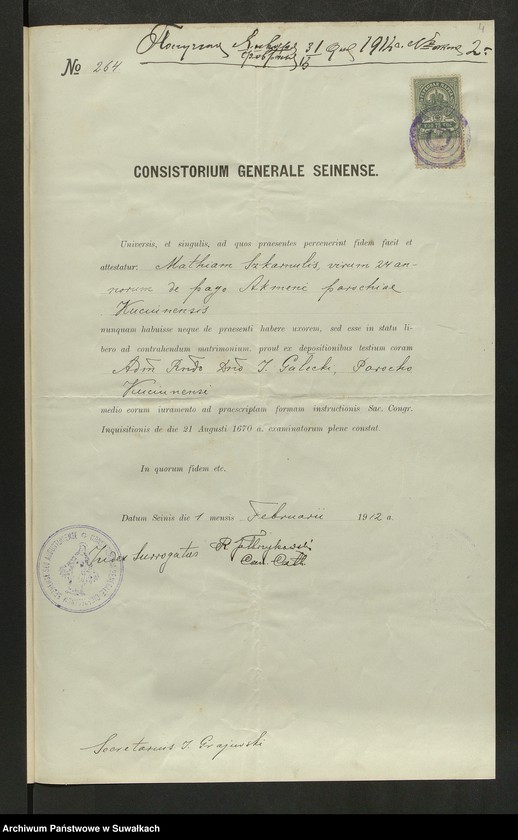 4
31 1912 г. № 2
13
№ 264
CONSISTORIUM GENERALE SEINENSE.
Universis, et singulis, ad quos praesentes percenerint fidem facit et
attestatur: Mathiam Szkamulis, virum 24 an-
norum de pago Akmeni parochiae
Kuciunensis
nunquam habuisse neque de praesenti habere uxorem, sed esse in statu li-
bero ad contrahendum matrimonium, prout ex depositionibus testium coram
Adm Rndo Dno J. Galecki, Parocho
Kuciunensi
medio eorum iuramento ad praescriptam formam instructionis Sac. Congr.
Inquisitionis de die 21 Augusti 1670 a. examinatorum plene constat.
In quorum fidem etc.
Datum Seinis die 1 mensis Februarii 1912 a.
Judex Surrogatus R.
Can. Cath.
Secretarius J. Grajewski
Archiwum Państwowe w Suwałkach